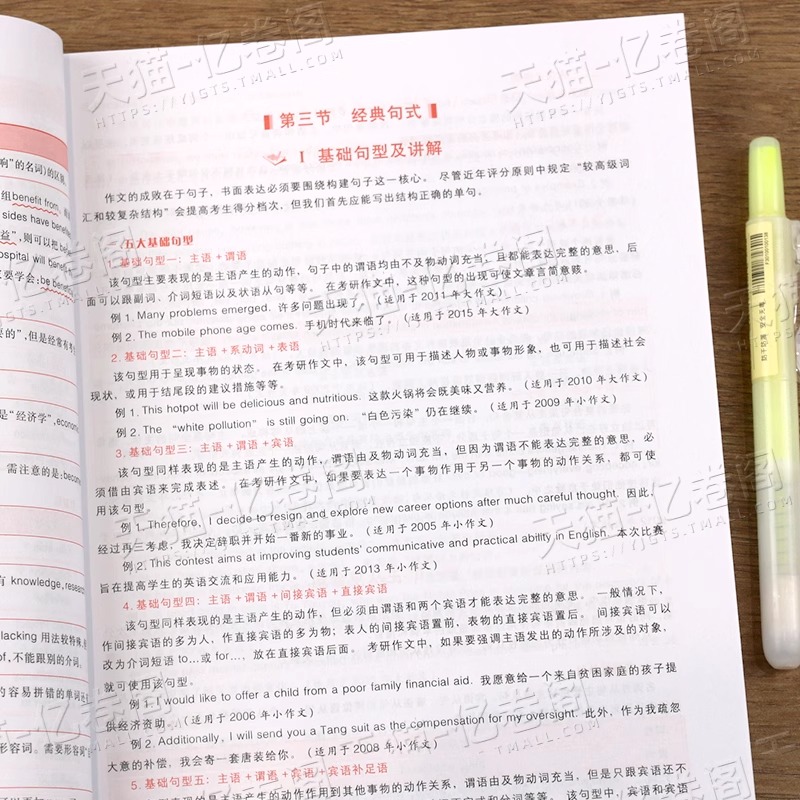 天猫-亿卷阁
HTTPS://YJGTS.TMALL.COM
第三节 经典句式
I 基础句型及讲解
作文的成败在于句子，书面表达必须要围绕构建句子这一核心。尽管近年评分原则中规定“较高级词
汇和较复杂结构”会提高考生得分档次，但我们首先应能写出结构正确的单句。
五大基础句型
1. 基础句型一：主语+谓语
该句型主要表现的是主语产生的动作，句子中的谓语均由不及物动词充当，且都能表达完整的意思，后
面可以跟副词、介词短语以及状语从句等等。在考研作文中，这种句型的出现可使文章言简意赅。
例 1. Many problems emerged. 许多问题出现了。（适用于 2011 年大作文）
例 2. The mobile phone age comes. 手机时代来临了。（适用于 2015 年大作文）
2. 基础句型二：主语+系动词+表语
该句型用于呈现事物的状态。在考研作文中，该句型可用于描述人物或事物形象，也可用于描述社会
现状，或用于结尾段的建议措施等等。
例 1. This hotpot will be delicious and nutritious. 这款火锅将会既美味又营养。（适用于 2010 年大作文）
例 2. The “white pollution” is still going on. “白色污染”仍在继续。（适用于 2009 年小作文）
3. 基础句型三：主语+谓语+宾语
该句型同样表现的是主语产生的动作，谓语由及物动词充当，但因为谓语不能表达完整的意思，必
须借由宾语来完成表述。在考研作文中，如果要表达一个事物作用于另一个事物的动作关系，都可使
用该句型。
例 1. Therefore, I decide to resign and explore new career options after much careful thought. 因此，
经过再三考虑，我决定辞职并开始一番新的事业。（适用于 2005 年小作文）
例 2. This contest aims at improving students’ communicative and practical ability in English. 本次比赛
旨在提高学生的英语交流和应用能力。（适用于 2013 年小作文）
4. 基础句型四：主语+谓语+间接宾语+直接宾语
该句型同样表现的是主语产生的动作，但必须由谓语和两个宾语才能表达完整的意思。一般情况下，
作间接宾语的多为人，作直接宾语的多为物；表人的间接宾语置前，表物的直接宾语置后。间接宾语可以
改为介词短语 to…或 for…，放在直接宾语后面。考研作文中，如果要强调主语发出的动作所涉及的对象，
就可使用该句型。
例 1. I would like to offer a child from a poor family financial aid. 我愿意给一个来自贫困家庭的孩子提
供经济资助。（适用于 2006 年小作文）
例 2. Additionally, I will send you a Tang suit as the compensation for my oversight. 此外，作为我疏忽
大意的补偿，我会寄一套唐装给你。（适用于 2008 年小作文）
5. 基础句型五：主语+谓语+宾语+宾语补足语
该句型表现的是主语产生的动作作用到其他事物的动作关系，谓语由及物动词充当，但是只跟宾语还不
响”的名词)的区别
组 benefit from
sides have benefited
益”，则可以把
ospital will benefit
要学会:be
要的”,但是经常有
是“经济学”, econo
需注意的是:beco
有 knowledge, resear
lacking 用法较特殊
of,不能跟别的介词
的容易拼错的单词
形容词。需要形容词